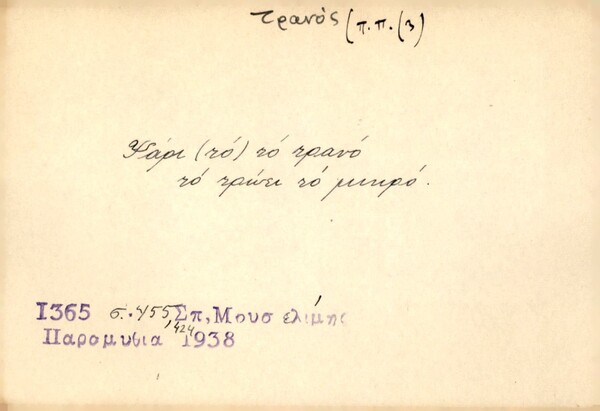 τρανός (π.π. (3)
Ψάρι (τό) τό τρανό
τό τρώει τό μικρό.
1365 σ. 455, Σπ, Μουσελίμης
424
Παραμυθιά 1938